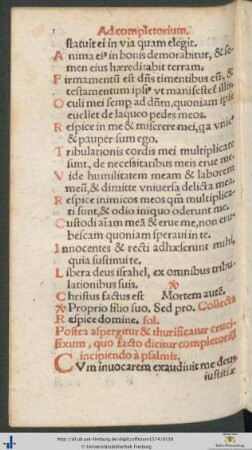 Ad completorium.
statuit ei in via quam elegit.
A nima eiꝰ in bonis demorabitur, & se-
men eius hæreditabit terram.
F irmamentũ est dñs timentibus eũ, &
testamentum ipsiꝰ vt manifestet illis.
O culi mei semp ad dñm, quoniam ipse
euellet de laqueo pedes meos.
R espice in me & miserere mei, qa vnicꝰ
& pauper sum ego.
T ribulationes cordis mei multiplicatæ
sunt, de necessitatibus meis erue me.
V ide humilitatem meam & laborem
meũ, & dimitte vniuersa delicta mea.
R espice inimicos meos qm̃ multiplica-
ti sunt, & odio iniquo oderunt me.
C ustodi aĩam meã & erue me, non eru-
bescam quoniam speraui in te.
I nnocentes & recti adhæserunt mihi,
quia sustinui te.
L ibera deus israhel, ex omnibus tribu-
lationibus suis.
C hristus factus est Mortem autẽ.
Proprio filio suo. Sed pro. Collecta
R espice domine. fol.
Postea aspergitur & thurificatur cruci-
fixum, quo facto dicitur completoriũ
incipiendo à psalmis.
C Vm inuocarem exaudiuit me deus
iustitiæ
http://dl.ub.uni-freiburg.de/diglit/officium1574/0130
© Universitätsbibliothek Freiburg